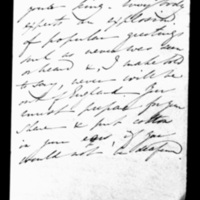 your King. Every body
expects an explosion
of popular greetings
such as never was seen
or heard & I make bold
to say, never will be
out of England. You
must prepare for your
share & put cotton
in your ears if you
would not be deafened